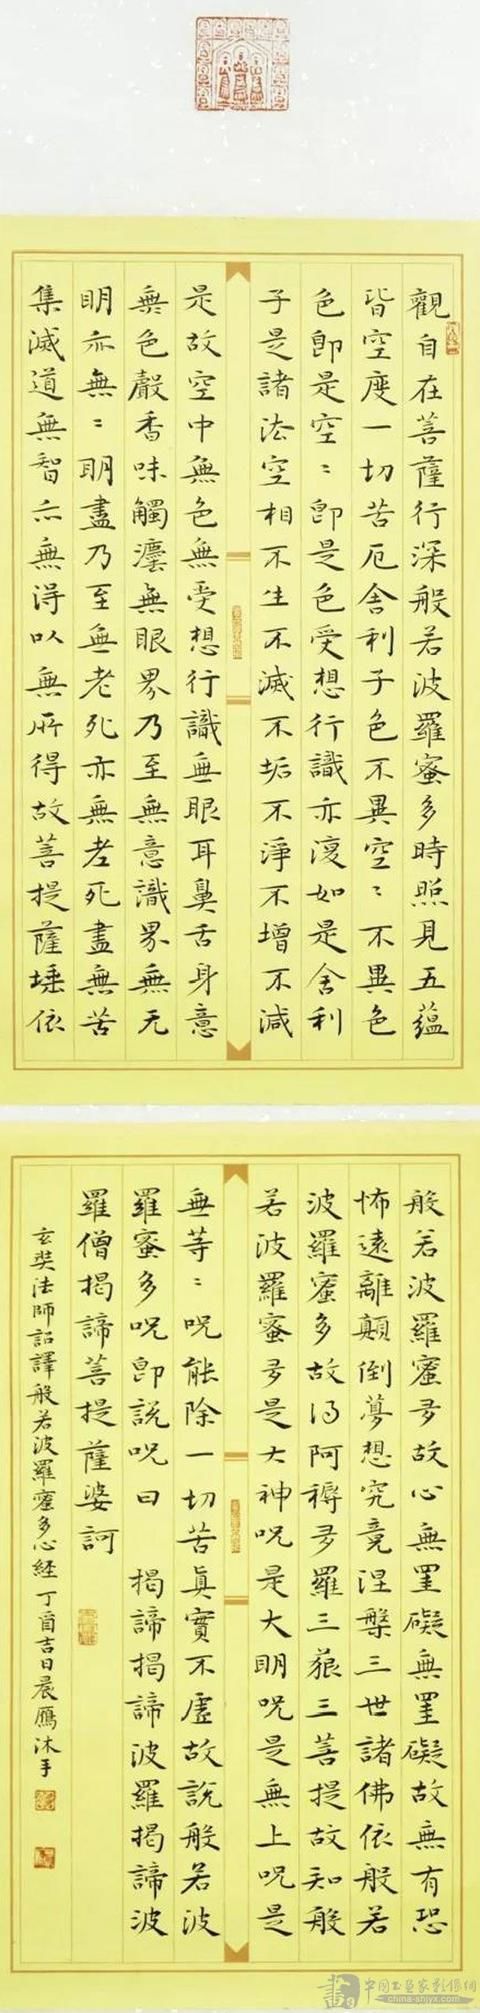 觀自在菩薩行深般若波羅蜜多時照見五蘊
皆空度一切苦厄舍利子色不異空〻不異色
色即是空〻即是色受想行識亦復如是舍利
子是諸法空相不生不滅不垢不淨不增不減
是故空中無色無受想行識無眼耳鼻舌身意
無色聲香味觸灋無眼界乃至無意識界無无
明亦無〻明盡乃至無老死亦無老死盡無苦
集滅道無智亦無得以無所得故菩提薩埵依
般若波羅蜜多故心無罣礙無罣礙故無有恐
怖遠離顛倒夢想究竟涅槃三世諸佛依般若
波羅蜜多故得阿耨多羅三藐三菩提故知般
若波羅蜜多是大神咒是大明咒是無上咒是
無等〻咒能除一切苦真實不虛故說般若波
羅蜜多咒即說咒曰 揭諦揭諦波羅揭諦波
羅僧揭諦菩提薩婆訶
玄奘法師詔譯般若波羅蜜多心經 丁酉吉日晨鴈沐手
中国书画家影像网
china-shjyx.com